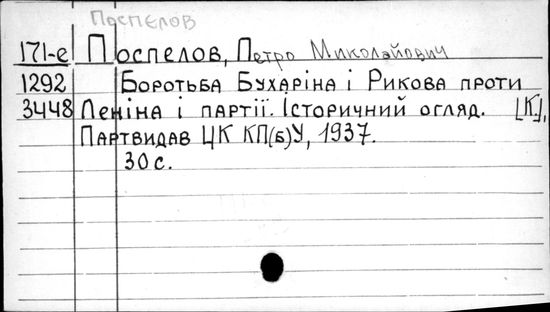 Поспелов
171-е Поспелов, Петро Миколайович
1292 Боротьба Бухаріна і Рикова проти
3448 Леніна і партії. Історичний огляд. [К],
Партвидав ЦК КП(б)У, 1937.
30 с.